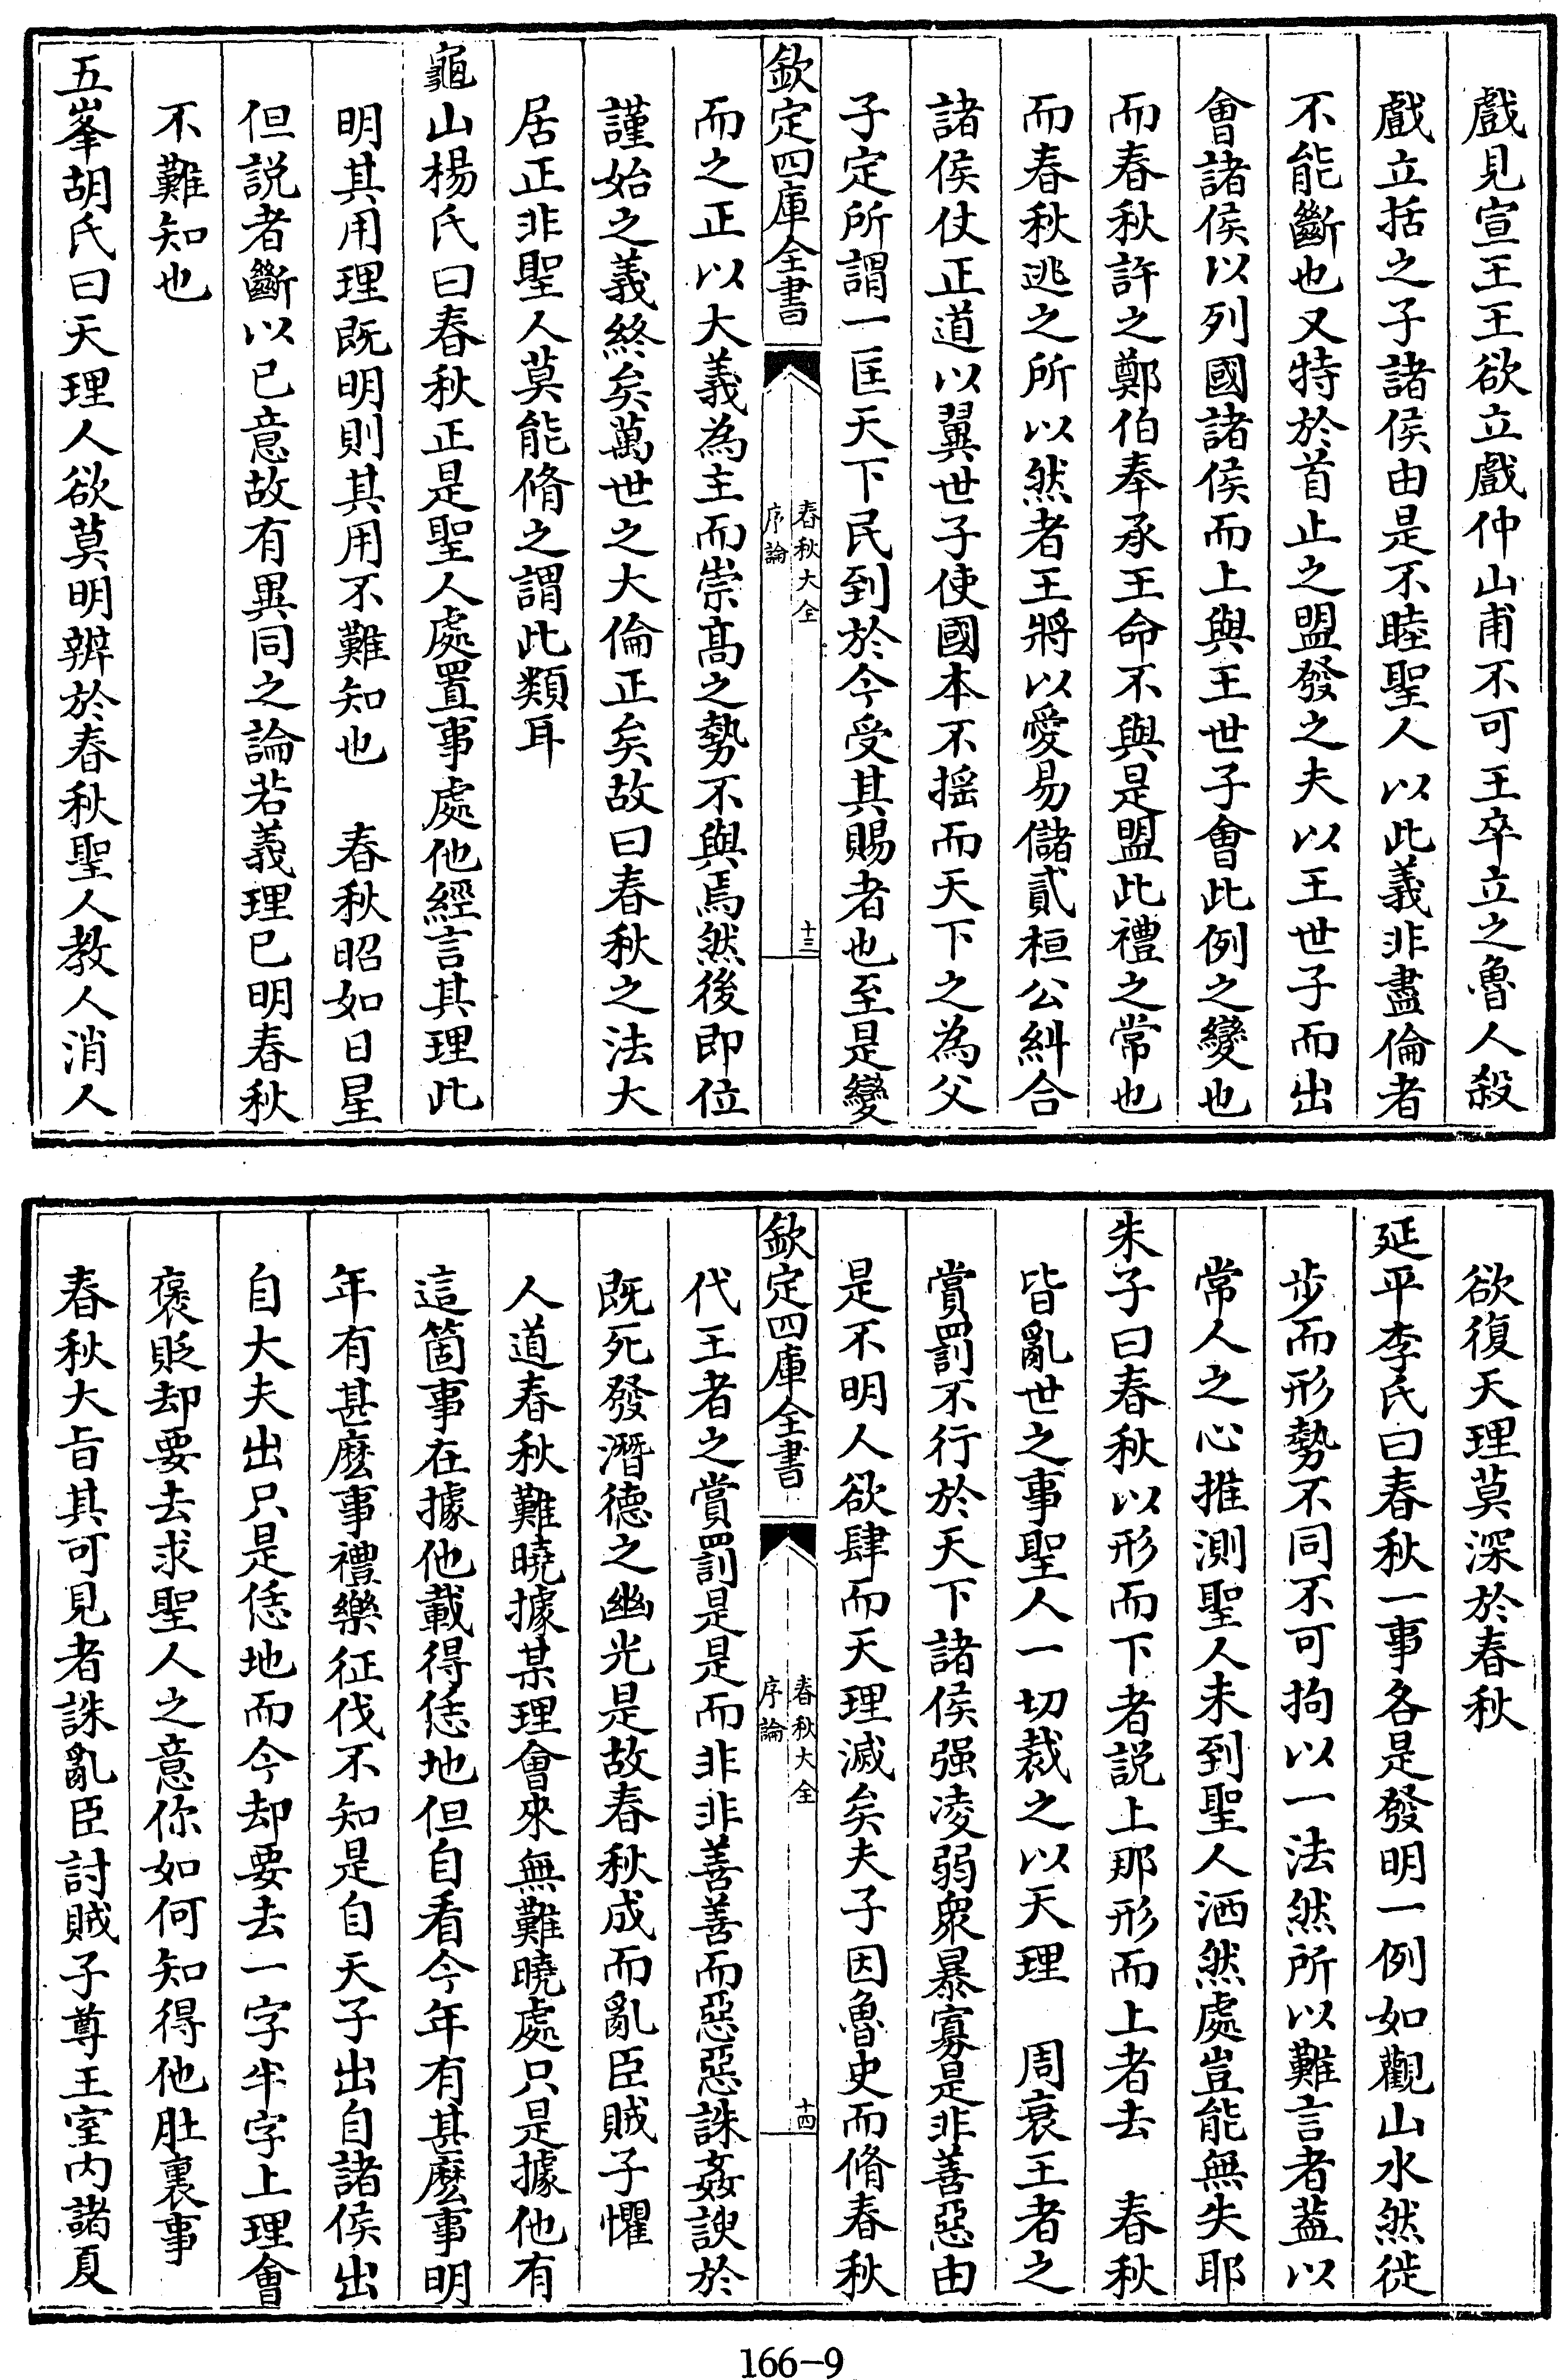 戲見宣王王欲立戲仲山甫不可王卒立之魯人殺
戲立括之子諸侯由是不睦聖人以此義非盡倫者
不能斷也又特於首止之盟發之夫以王世子而出
會諸侯以列國諸侯而上與王世子會此例之變也
而春秋許之鄭伯奉承王命不與是盟此禮之常也
而春秋逃之所以然者王將以愛易儲貳桓公糾合
諸侯仗正道以翼世子使國本不揺而天下之為父
子定所謂一匡天下民到於今受其賜者也至是變
欽定四庫全書
春秋大全
序論
十三
而之正以大義為主而崇髙之勢不與焉然後即位
謹始之義終矣萬世之大倫正矣故曰春秋之法大
居正非聖人莫能脩之謂此類耳
龜山楊氏曰春秋正是聖人處置事處他經言其理此
明其用理既明則其用不難知也　春秋昭如日星
但説者斷以已意故有異同之論若義理已明春秋
不難知也
五峯胡氏曰天理人欲莫明辨於春秋聖人教人消人
欲復天理莫深於春秋
延平李氏曰春秋一事各是發明一例如觀山水然徙
步而形勢不同不可拘以一法然所以難言者葢以
常人之心推測聖人未到聖人洒然處豈能無失耶
朱子曰春秋以形而下者説上那形而上者去　春秋
皆亂世之事聖人一切裁之以天理　周衰王者之
賞罰不行於天下諸侯强凌弱衆暴寡是非善惡由
是不明人欲肆而天理滅矣夫子因魯史而脩春秋
欽定四庫全書
春秋大全
序論
十四
代王者之賞罰是是而非非善善而惡惡誅姦諛於
既死發潛德之幽光是故春秋成而亂臣賊子懼
人道春秋難曉據某理會來無難曉處只是據他有
這箇事在據他載得恁地但自看今年有甚麽事明
年有甚麽事禮樂征伐不知是自天子出自諸侯出
自大夫出只是恁地而今却要去一字半字上理會
褒貶却要去求聖人之意你如何知得他肚裏事
春秋大㫖其可見者誅亂臣討賊子尊王室内諸夏
166-9